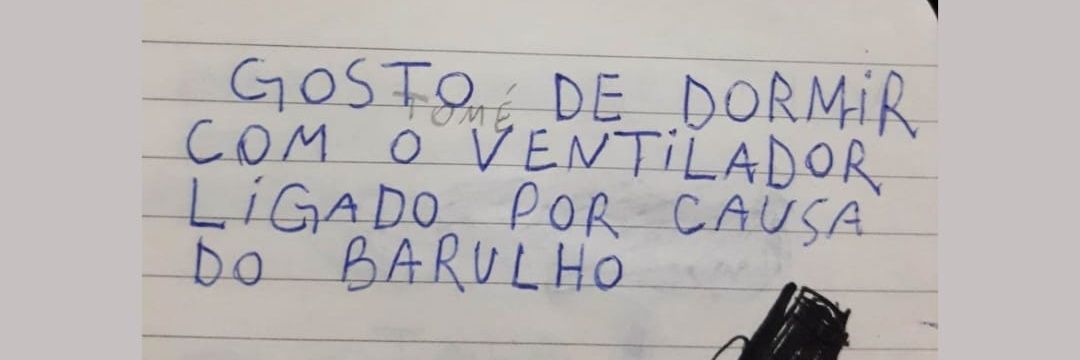 GOSTO DE DORMiR
TOMÉ
COM O VENTiLADOR
LiGADO POR CAUSA
DO BARULHO